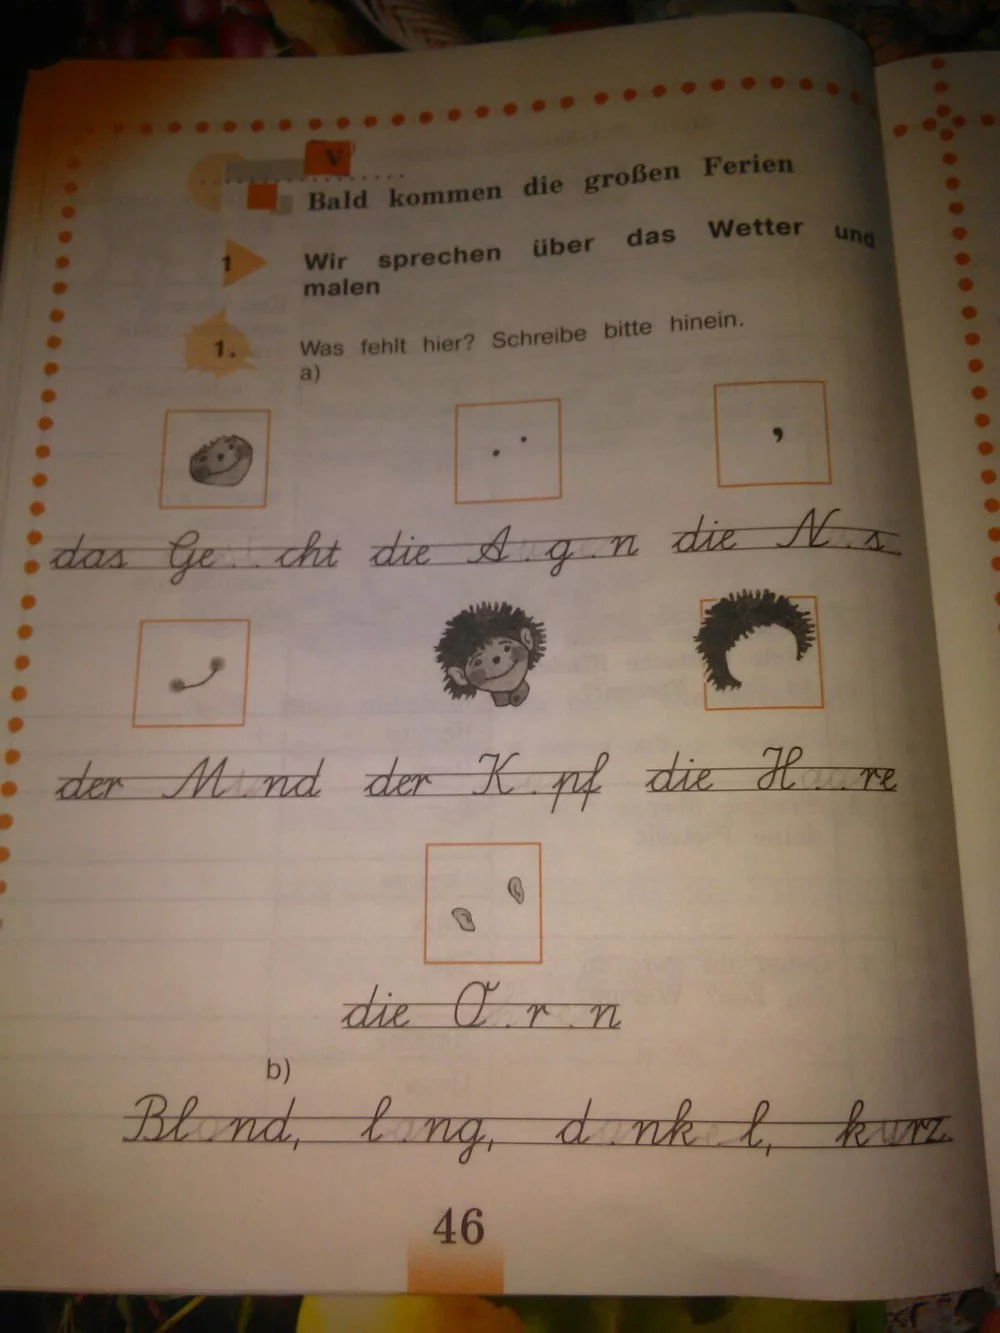 V
Bald kommen die großen Ferien
1 Wir sprechen über das Wetter und
malen
1. Was fehlt hier? Schreibe bitte hinein.
a)
das Ge . . cht die A . g . n die N . s .
der M . nd der K . pf die H . . re
die O . r . n
b)
Bl . nd, l . ng, d . nk . l, k . rz.
46